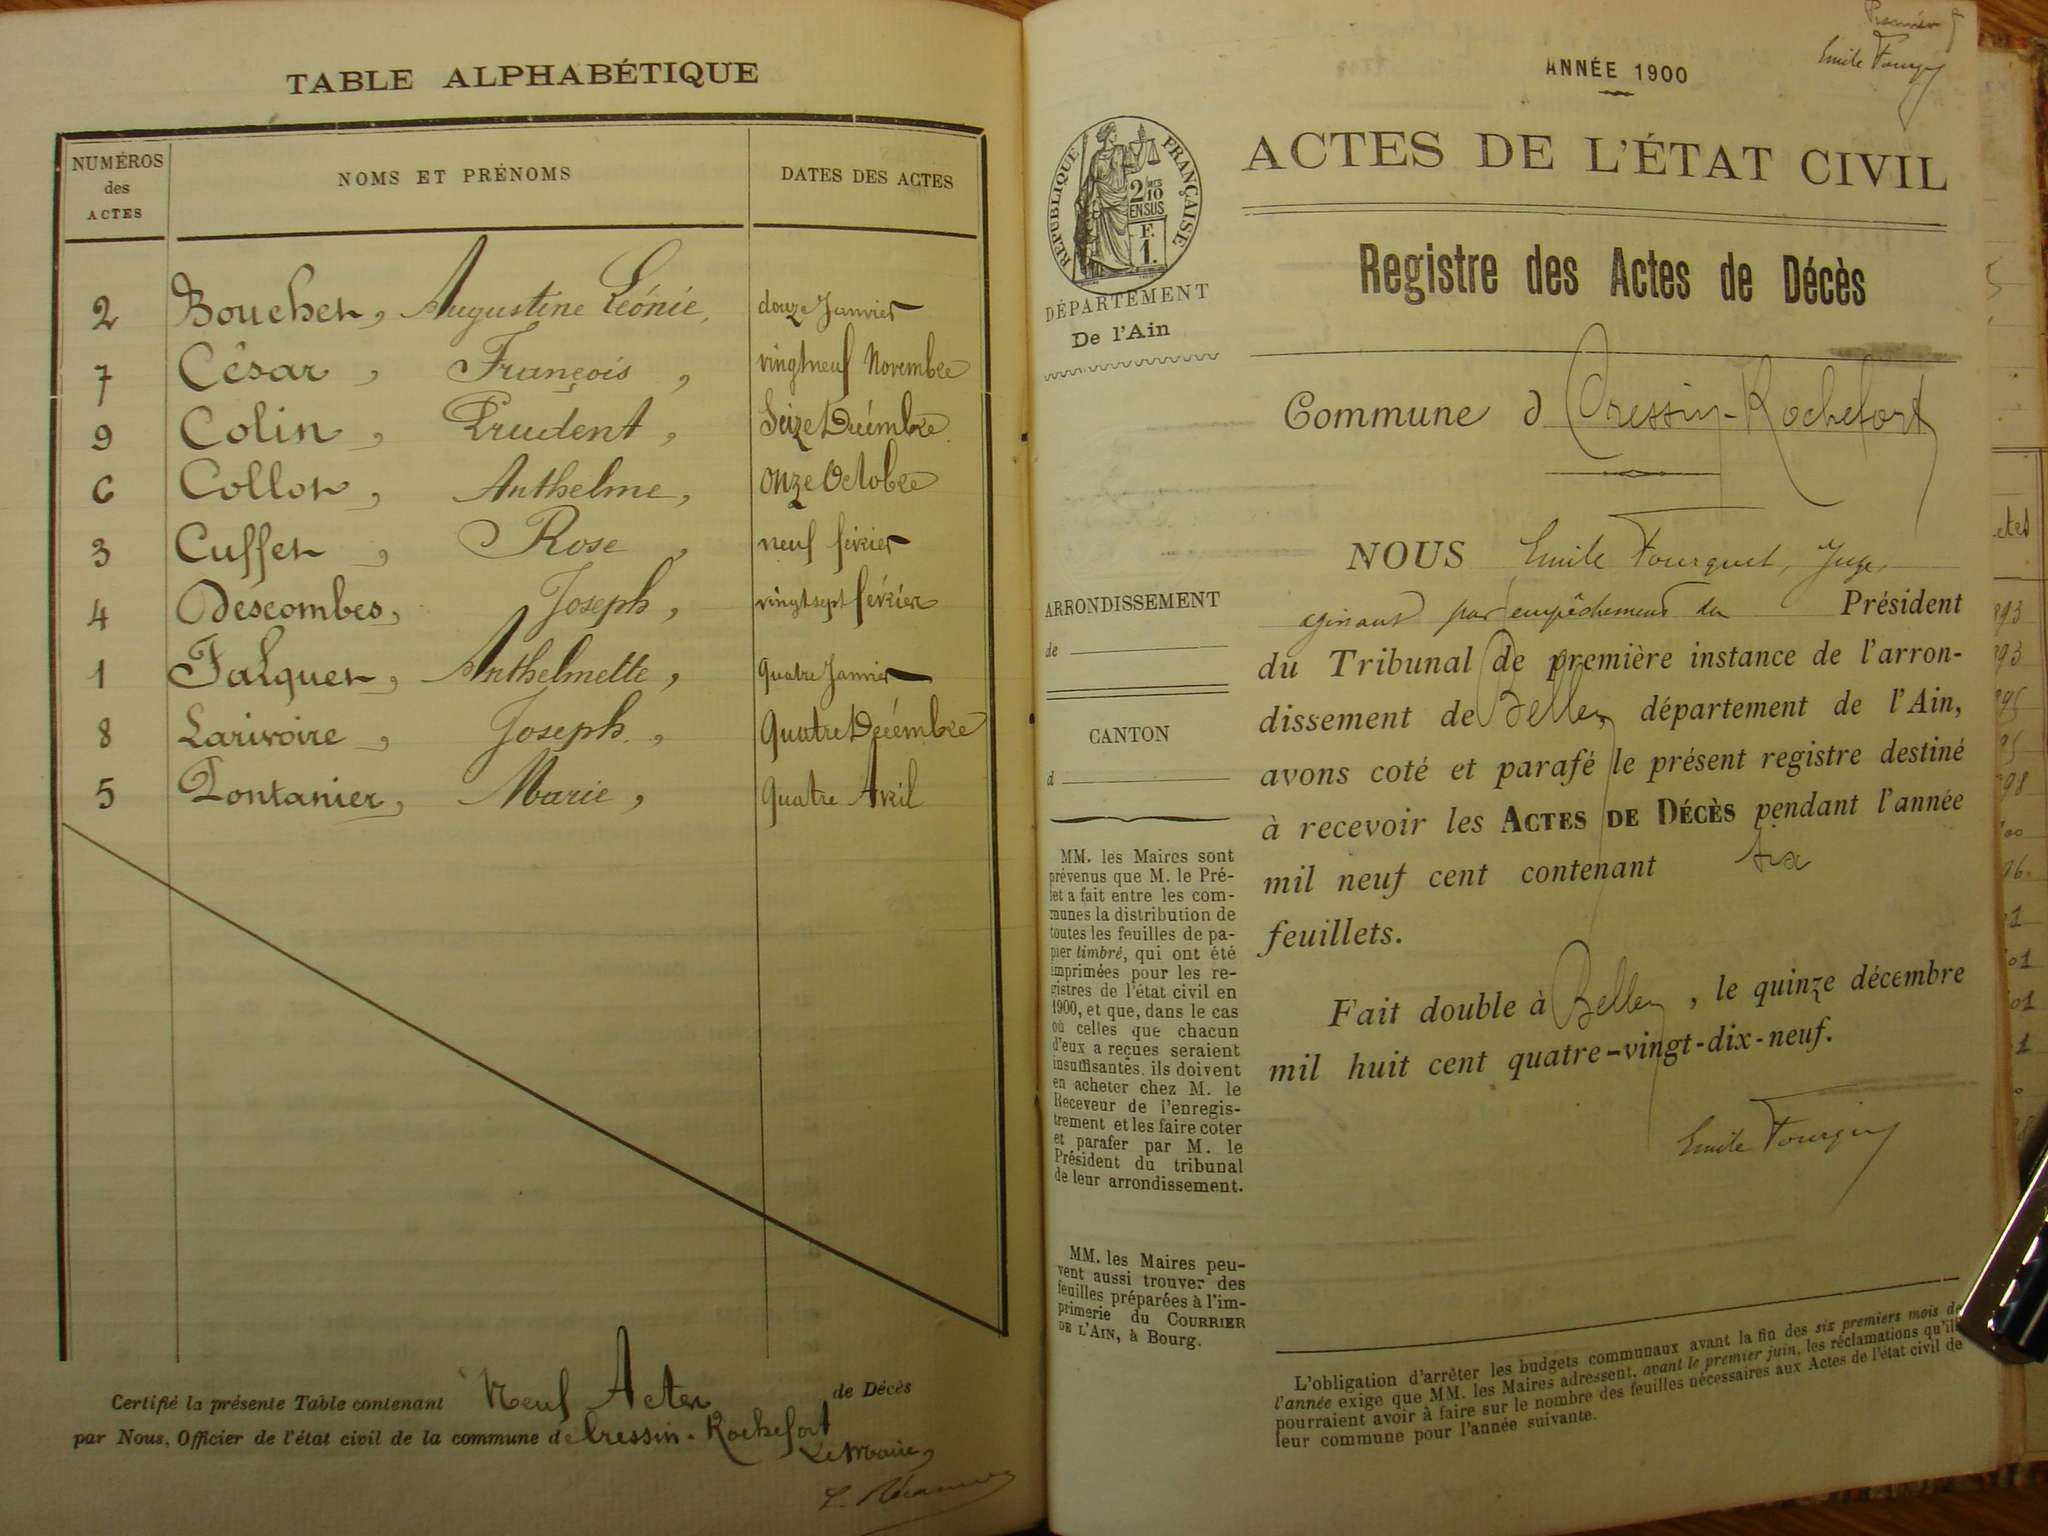 TABLE ALPHABÉTIQUE
NUMÉROS des ACTES NOMS ET PRÉNOMS DATES DES ACTES
2 Bouchet, Augustine Léónie, douze Janvier
7 César, François, vingtneuf Novembre
9 Colin, Prudent, Seize Décémbre
6 Collot, Anthelme, onze Octobre
3 Cuffet, Rose, neuf février
4 Descombes, Joseph, vingtsept février
1 Falquet, Anthelmette, Quatre Janvier
8 Larivoire, Joseph, Quatre Décémbre
5 Pontanier, Marie, Quatre Avril
Certifié la présente Table contenant Neuf Actes de Décès
par Nous, Officier de l'état civil de la commune de Cressin-Rochefort
Le Maire,
Premier
Emile Fourquet
ANNÉE 1900
ACTES DE L'ÉTAT CIVIL
RÉPUBLIQUE FRANÇAISE
2/10
EN SUS
F.
1.
DÉPARTEMENT
De l'Ain
Registre des Actes de Décès
Commune d Cressin-Rochefort
ARRONDISSEMENT
de
CANTON
d
MM. les Maires sont
prévenus que M. le Pré-
fet a fait entre les com-
munes la distribution de
toutes les feuilles de pa-
pier timbré, qui ont été
imprimées pour les re-
gistres de l'état civil en
1900, et que, dans le cas
où celles que chacun
d'eux a reçues seraient
insuffisantes, ils doivent
en acheter chez M. le
Receveur de l'enregis-
trement et les faire coter
et parafer par M. le
Président du tribunal
de leur arrondissement.
MM. les Maires peu-
vent aussi trouver des
feuilles préparées à l'im-
primerie du COURRIER
DE L'AIN, à Bourg.
NOUS Emile Fourquet, Juge
agissant par empêchement du Président
du Tribunal de première instance de l'arron-
dissement de Belley, département de l'Ain,
avons coté et parafé le présent registre destiné
à recevoir les ACTES DE DÉCÈS pendant l'année
mil neuf cent contenant six
feuillets.
Fait double à Belley, le quinze décembre
mil huit cent quatre-vingt-dix-neuf.
Emile Fourquet
L'obligation d'arrêter les budgets communaux avant la fin des six premiers mois de
l'année exige que MM. les Maires adressent, avant le premier juin, les réclamations qu'ils
pourraient avoir à faire sur le nombre des feuilles nécessaires aux Actes de l'état civil de
leur commune pour l'année suivante.